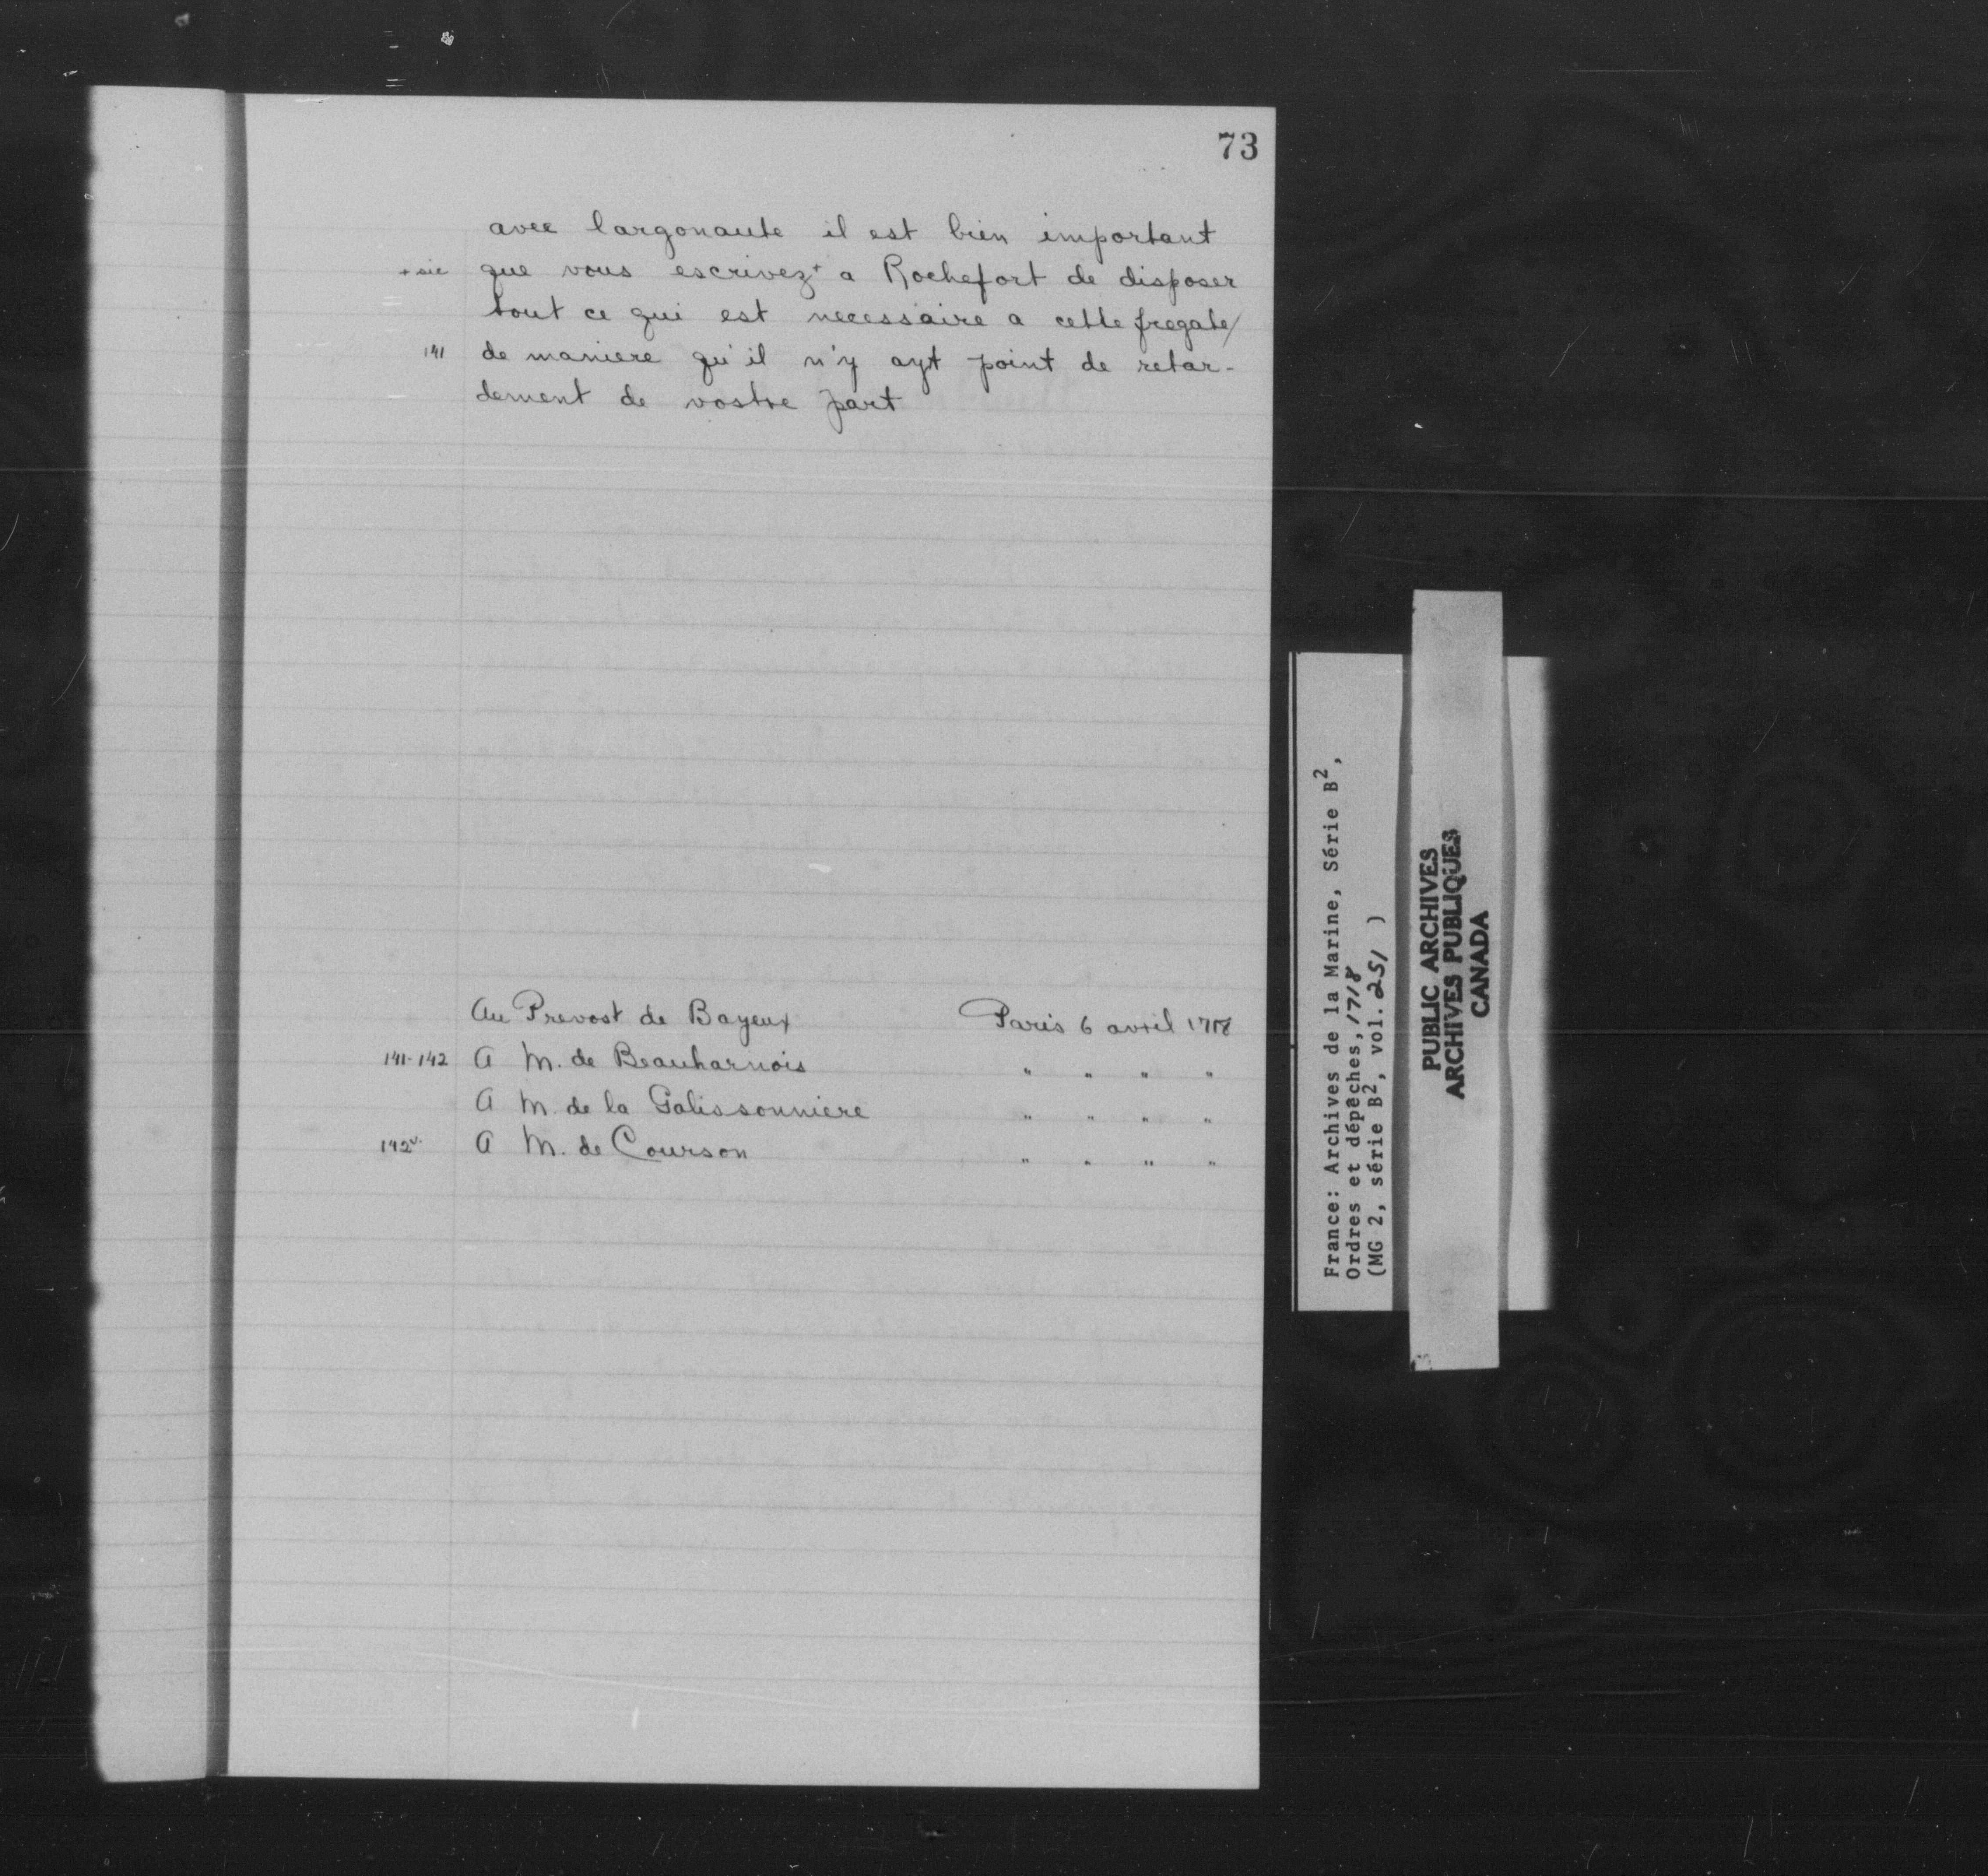 73
avec largonaute il est bien important
+ sic que vous escrivez+ a Rochefort de disposer
tout ce qui est necessaire a cette fregate/
141 de maniere qu'il n'y ayt point de retar-
dement de vostre part
Au Prevost de Bayeux Paris 6 avril 1718
141-142 A M. de Beauharnois " " " "
A M. de la Galissonniere " " " "
142v. A M. de Courson " " " "
France: Archives de la Marine, Série B2,
Ordres et dépêches, 1718
(MG 2, série B2, vol. 251 )
PUBLIC ARCHIVES
ARCHIVES PUBLIQUES
CANADA